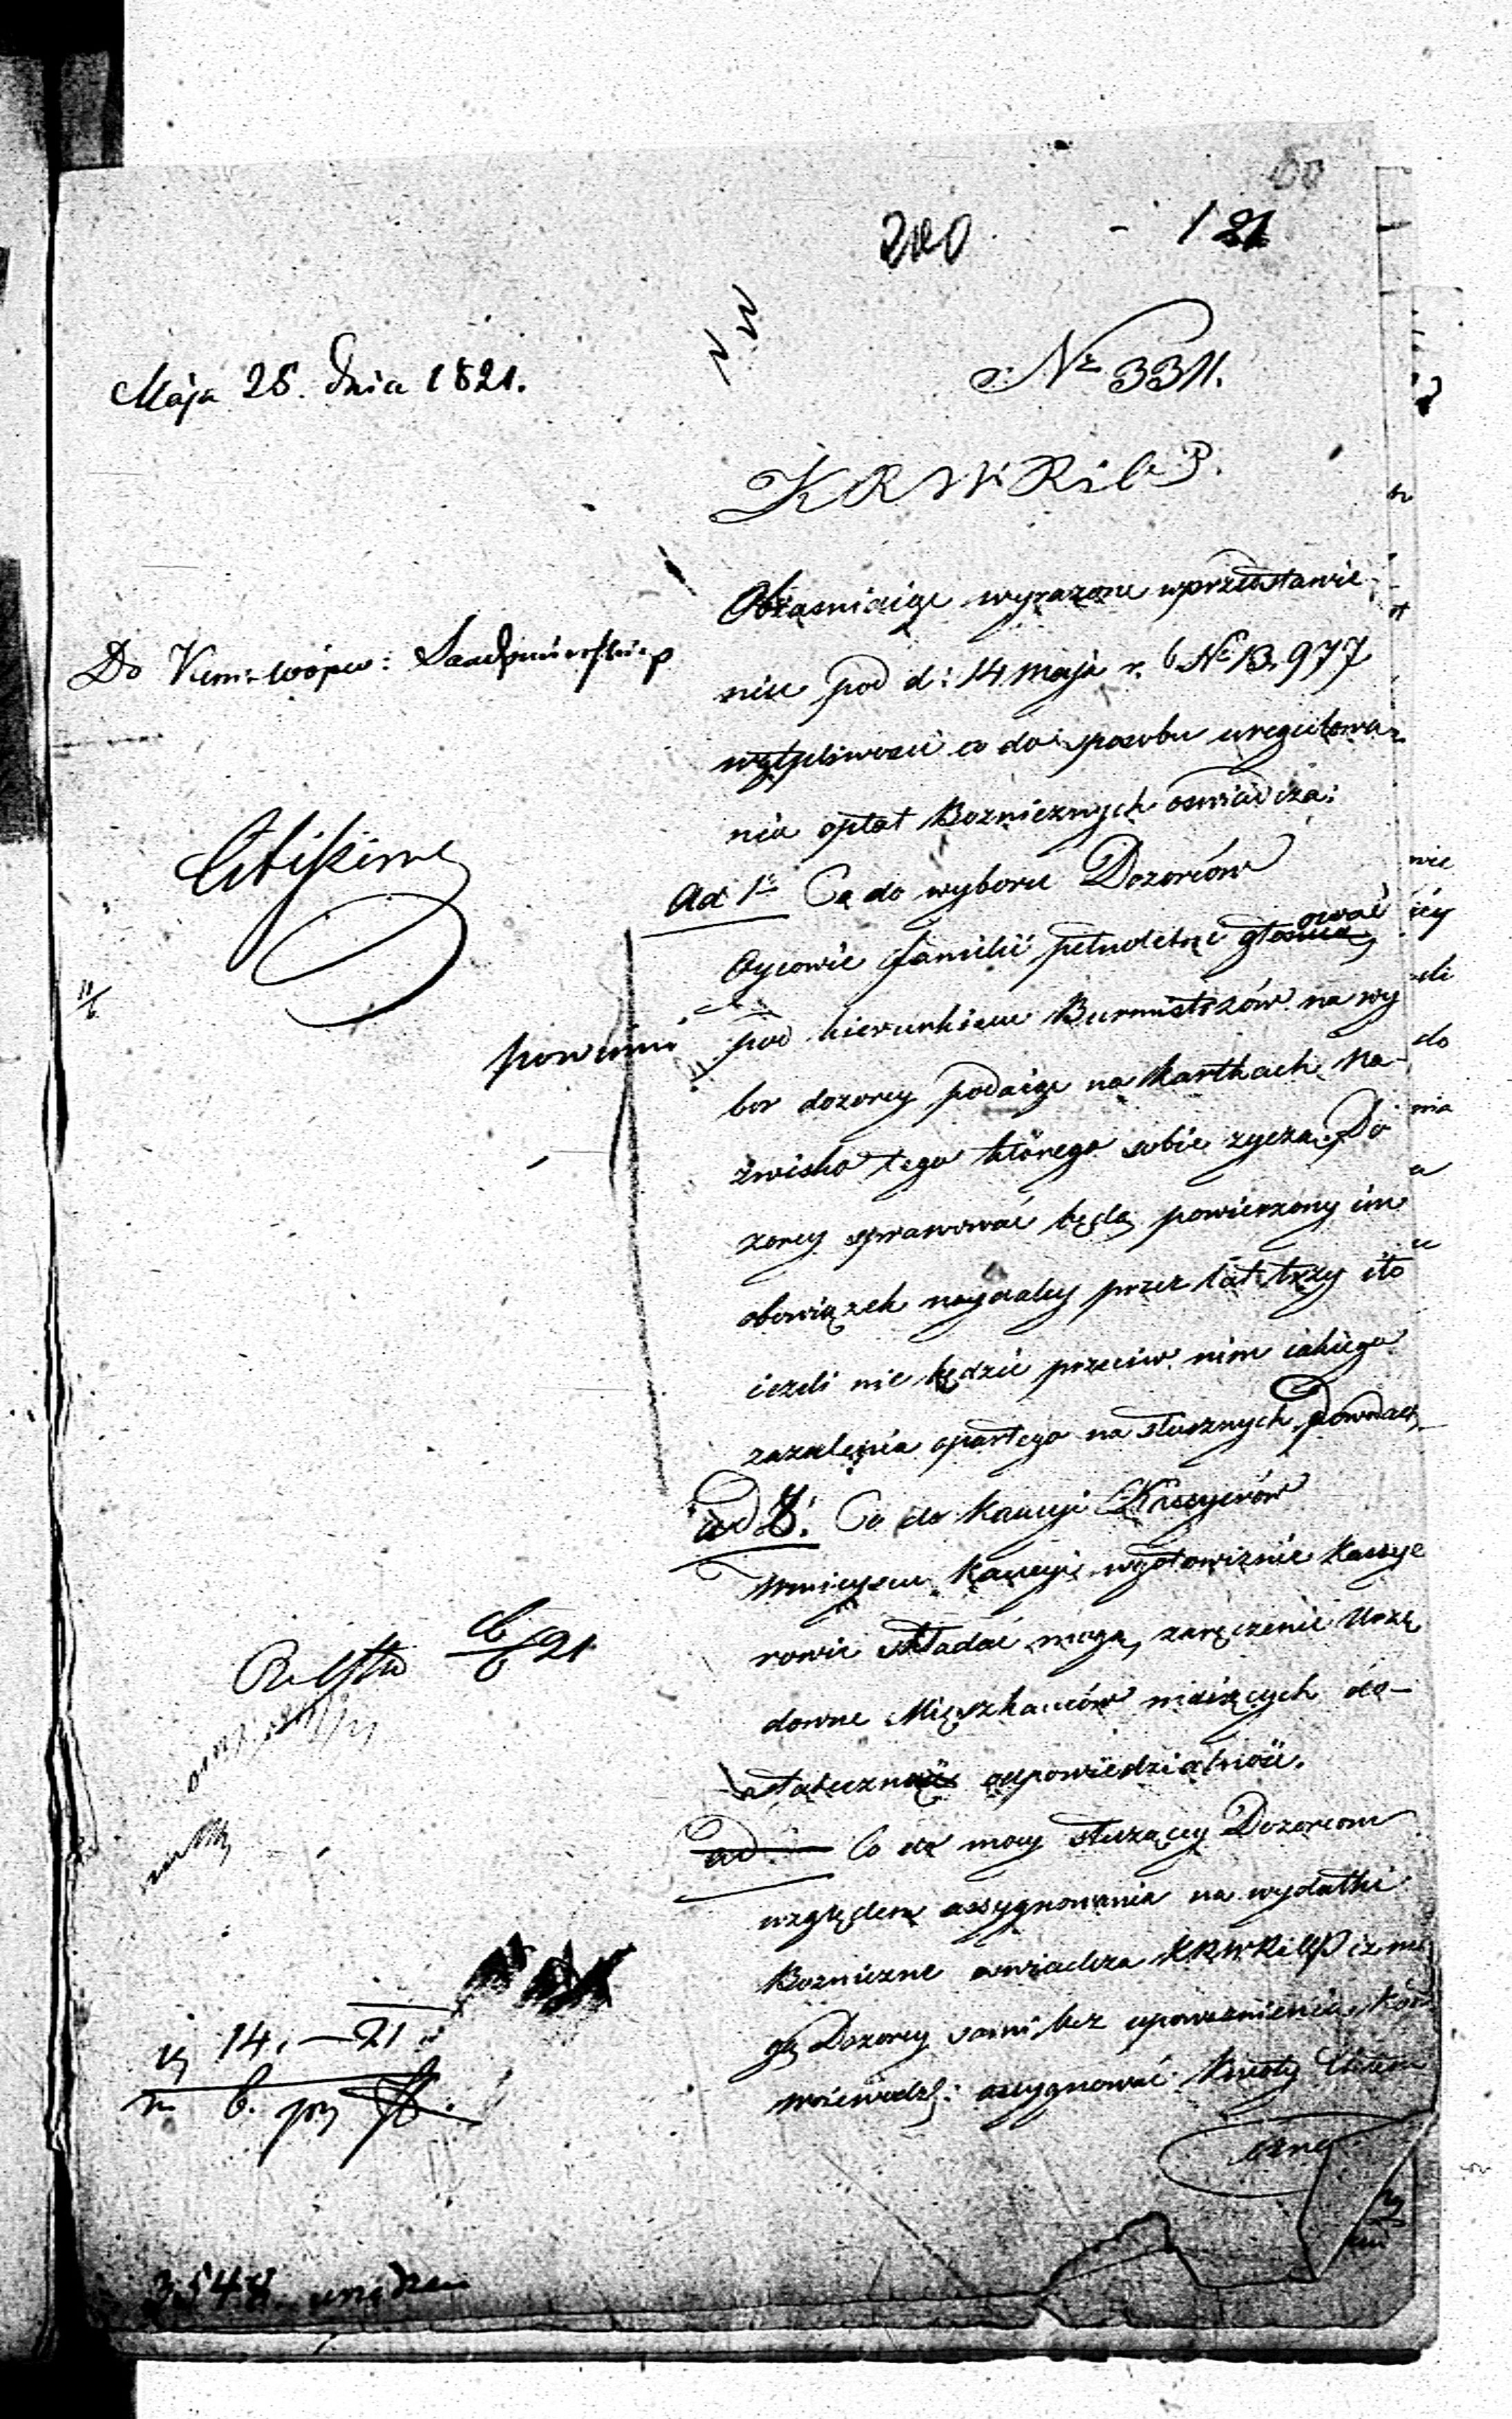 50
200 - 121
Nr 3311.
Maja 28. dnia 1821.
KRWRiOP.
Do Kom: Wojew: Sandomierskiey
Obiasniaiąc wyrazone w przedstawie
niu pod d: 14 Maja r. b. No 13,977
wątpliwosci co do sposobu uregulowa
nia opłat Bozniczych oswiadcza:
Ad 1o Co do wyboru Dozorców
Oycowie familii pełnoletni głosować
powinni pod kierunkiem Burmistrzów na wy
bor dozorcy podaiąc na kartkach Na-
zwisko tego którego sobie zyczą. Do
zorcy sprawować będą powierzony im
obowiązek naydaley przez lat trzy ito
iezeli nie będzie przeciw nim iakiego
zazalenia opartego na słusznych Dowodach
ad 2. Co do Kaucyi Kassyerów
Wmieyscu Kaucyi wgotowiznie Kassye
rowie składać mogą, zaręczenie Urzę
downe Mieszkanców maiących do-
stateczną odpowiedzialnosć.
21
ad Co do mocy słuzącey Dozorcom
względem assygnowania na wydatki
Boznicze oswiadcza KRWRiOP iz mo
gą Dozorcy sami, bez upowaznienia Kom
Woiewodz: assygnować kwoty
14. – 21.
b.
3548